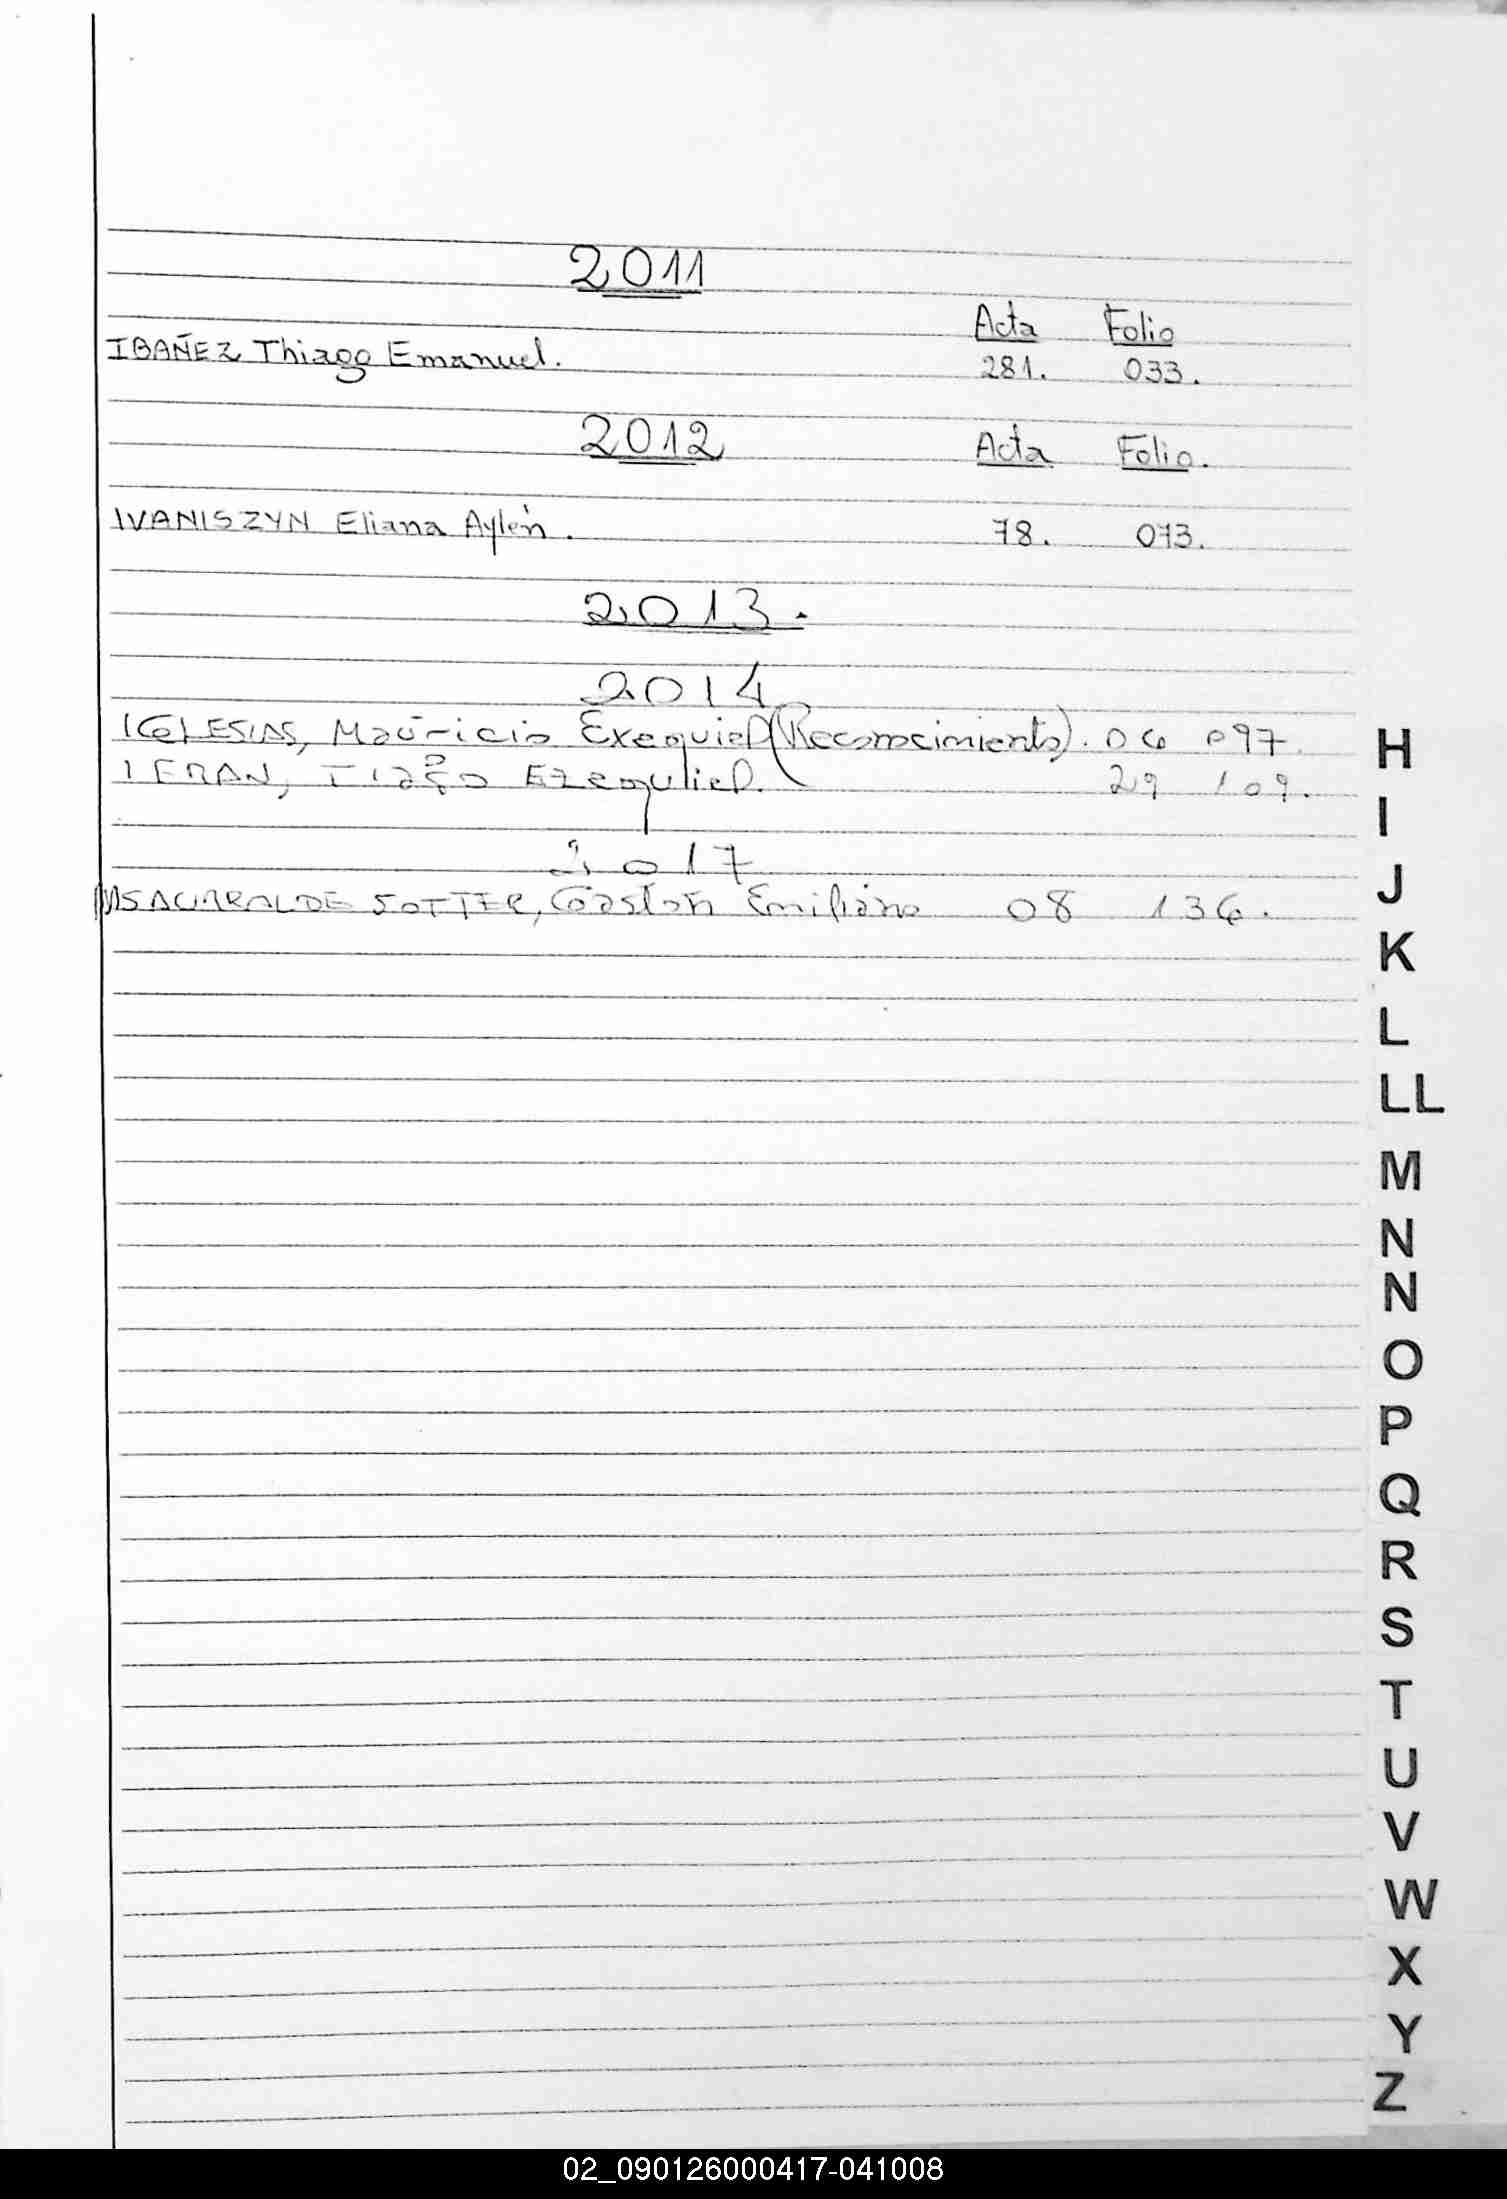 2011
Acta Folio
IBAÑEZ Thiago Emanuel. 281. 033.
2012 Acta Folio.
IVANISZYN Eliana Aylén. 78. 073.
2013.
2014
IGLESIAS, Mauricio Exequiel (Reconocimiento). 06 097.
Ezequiel. 29 109.
2017
Gastón Emiliano 08 136.
H
I
J
K
L
LL
M
N
N
O
P
Q
R
S
T
U
V
W
X
Y
Z
02_090126000417-041008